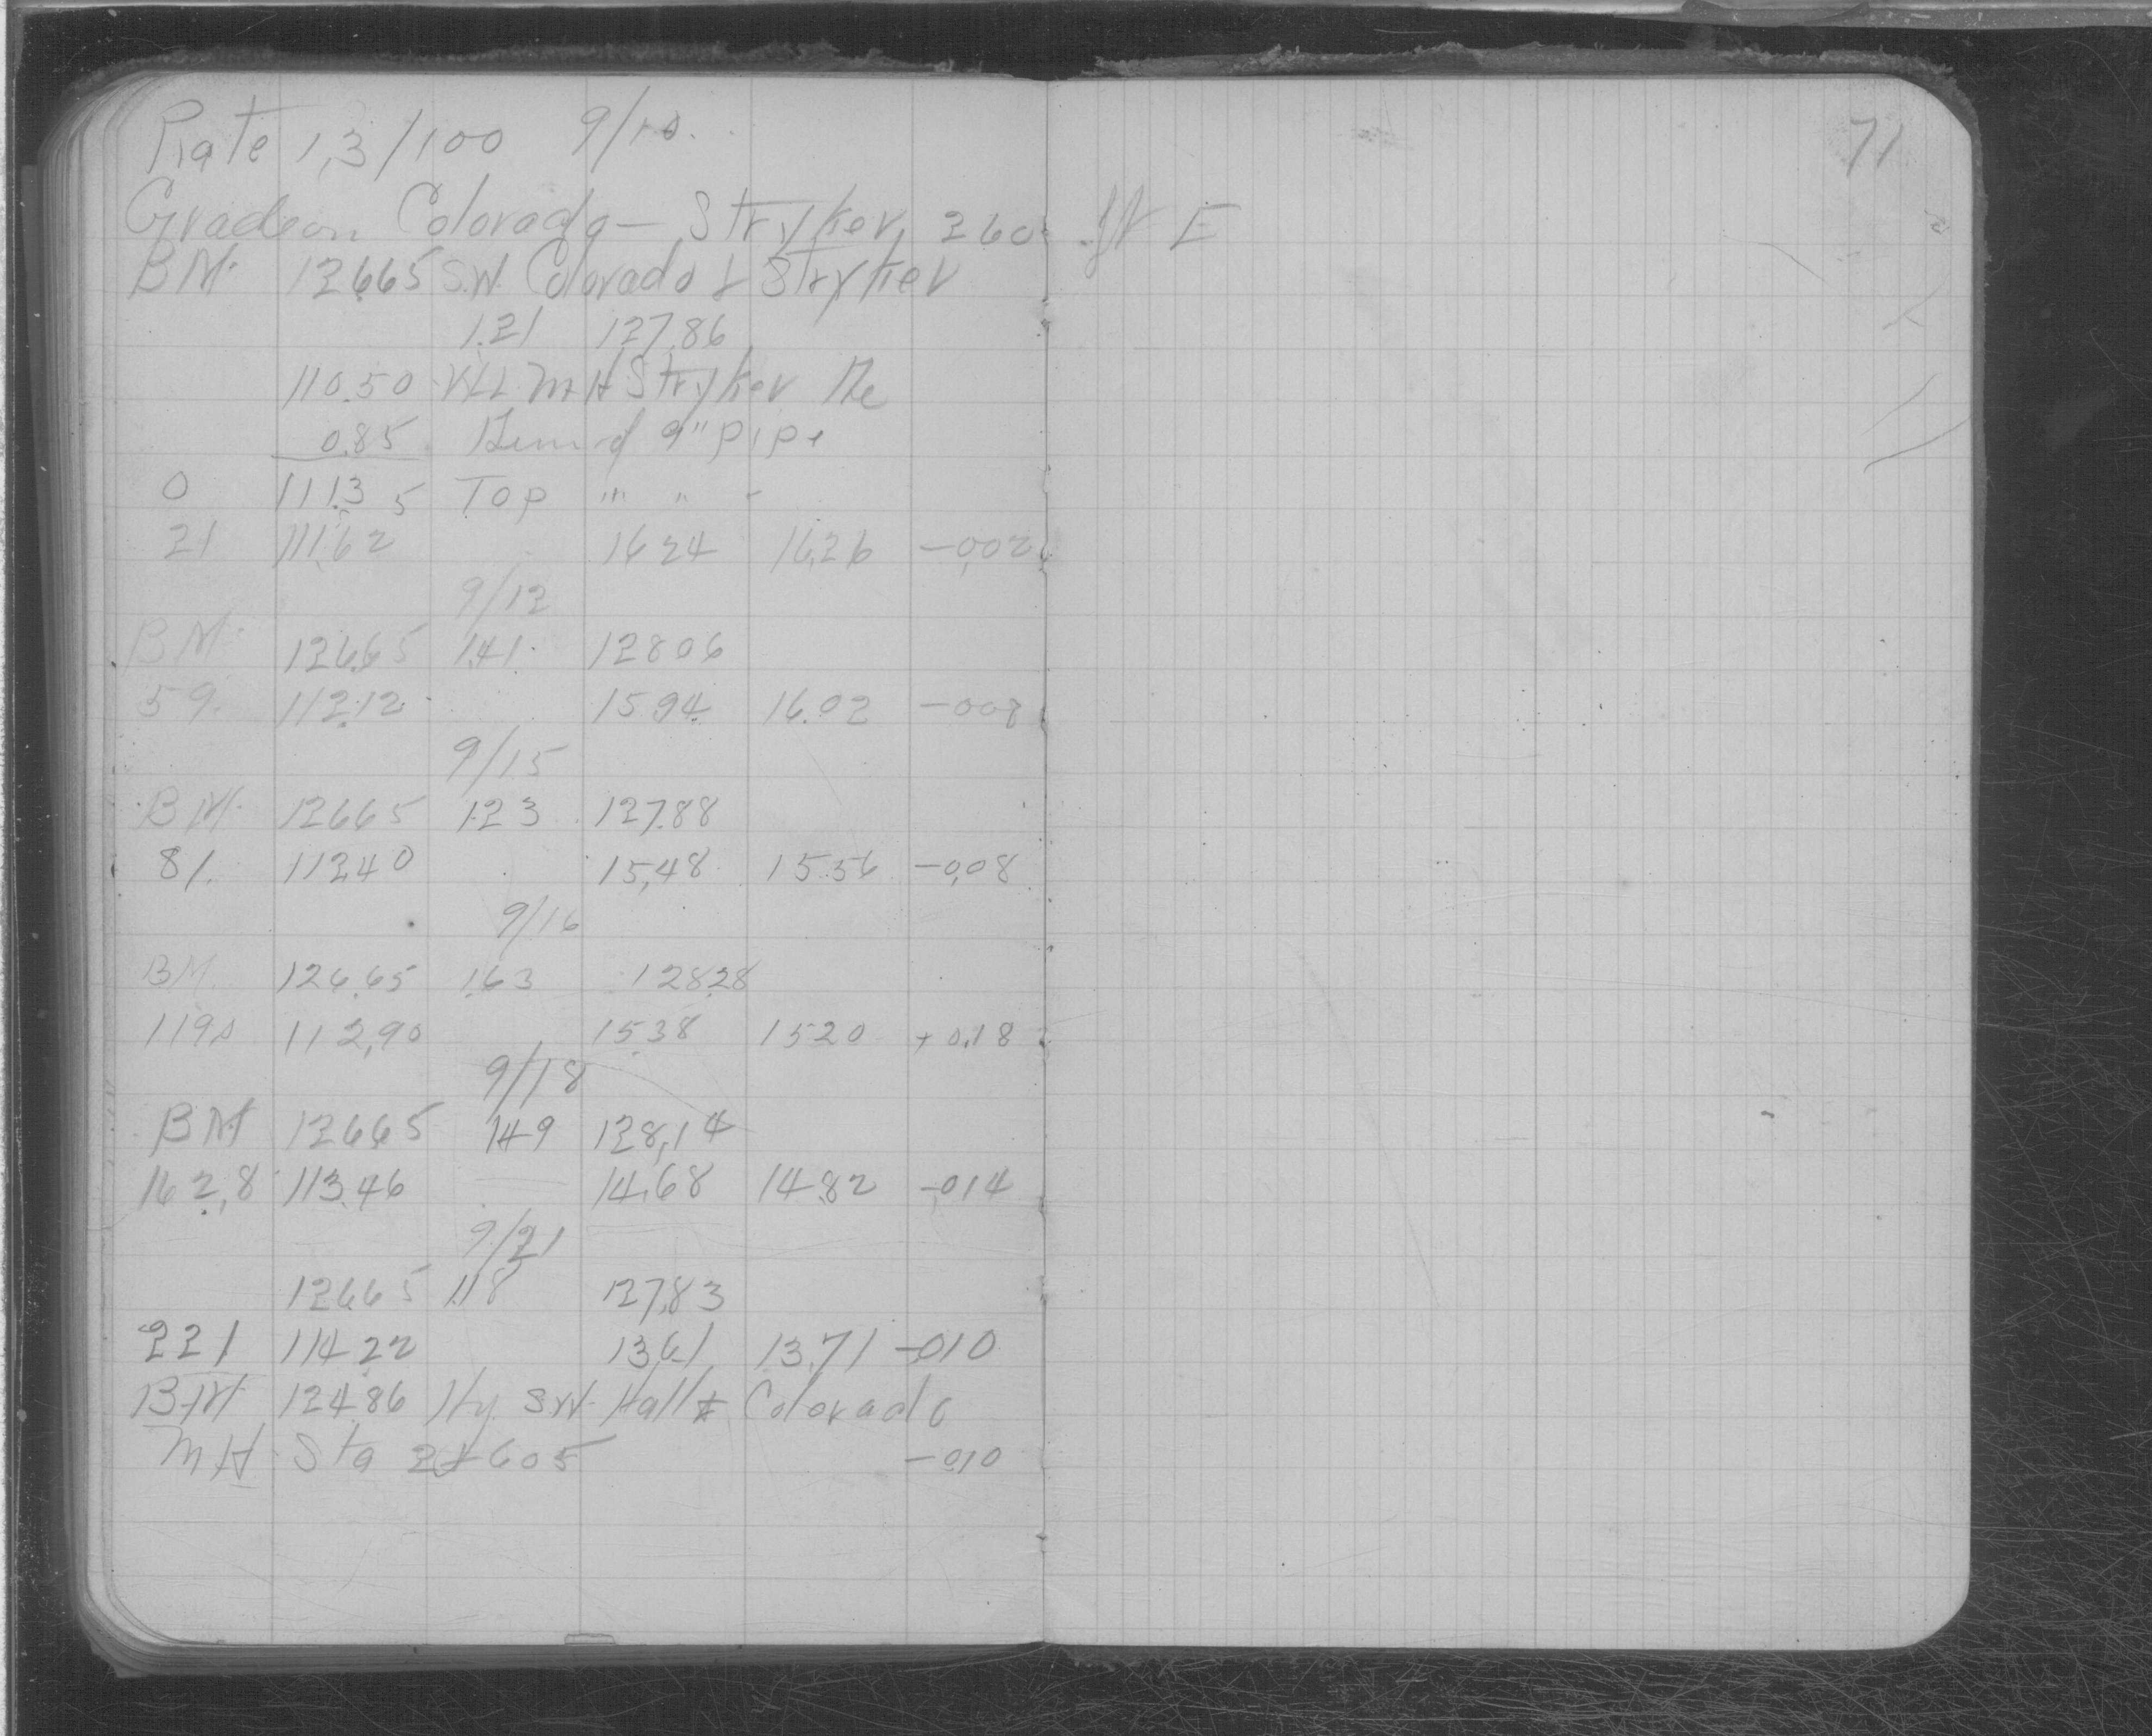 Rate 1.3/100 9/10.
71
Grade on Colorado - Stryker, 260 ft E
BM. 126.65 S.W. Colorado & Stryker
1.21 127.86
110.50 MH Stryker
0.85 of 9" pipe
0 111.35 Top " " "
21 111.62 16 24 16.26 -0.02
9/12
BM. 126.65 1.41 128 06
59. 112.12 15 94 16.02 -0 08
9/15
BM. 126 65 1.23 127.88
81. 112.40 15.48 15 56 -0.08
9/16
BM. 126.65 1.63 128.28
119.0 112.90 15.38 15 20 + 0.18
9/18
BM 126.65 1.49 128.14
162.8 113.46 14.68 14.82 -0 14
9/21
126.65 1.18 127.83
221 114 22 13.61 13.71 -0 10
BM 124.86 Hy. S.W. Hall & Colorado
MH Sta 2+60.5 -0.10